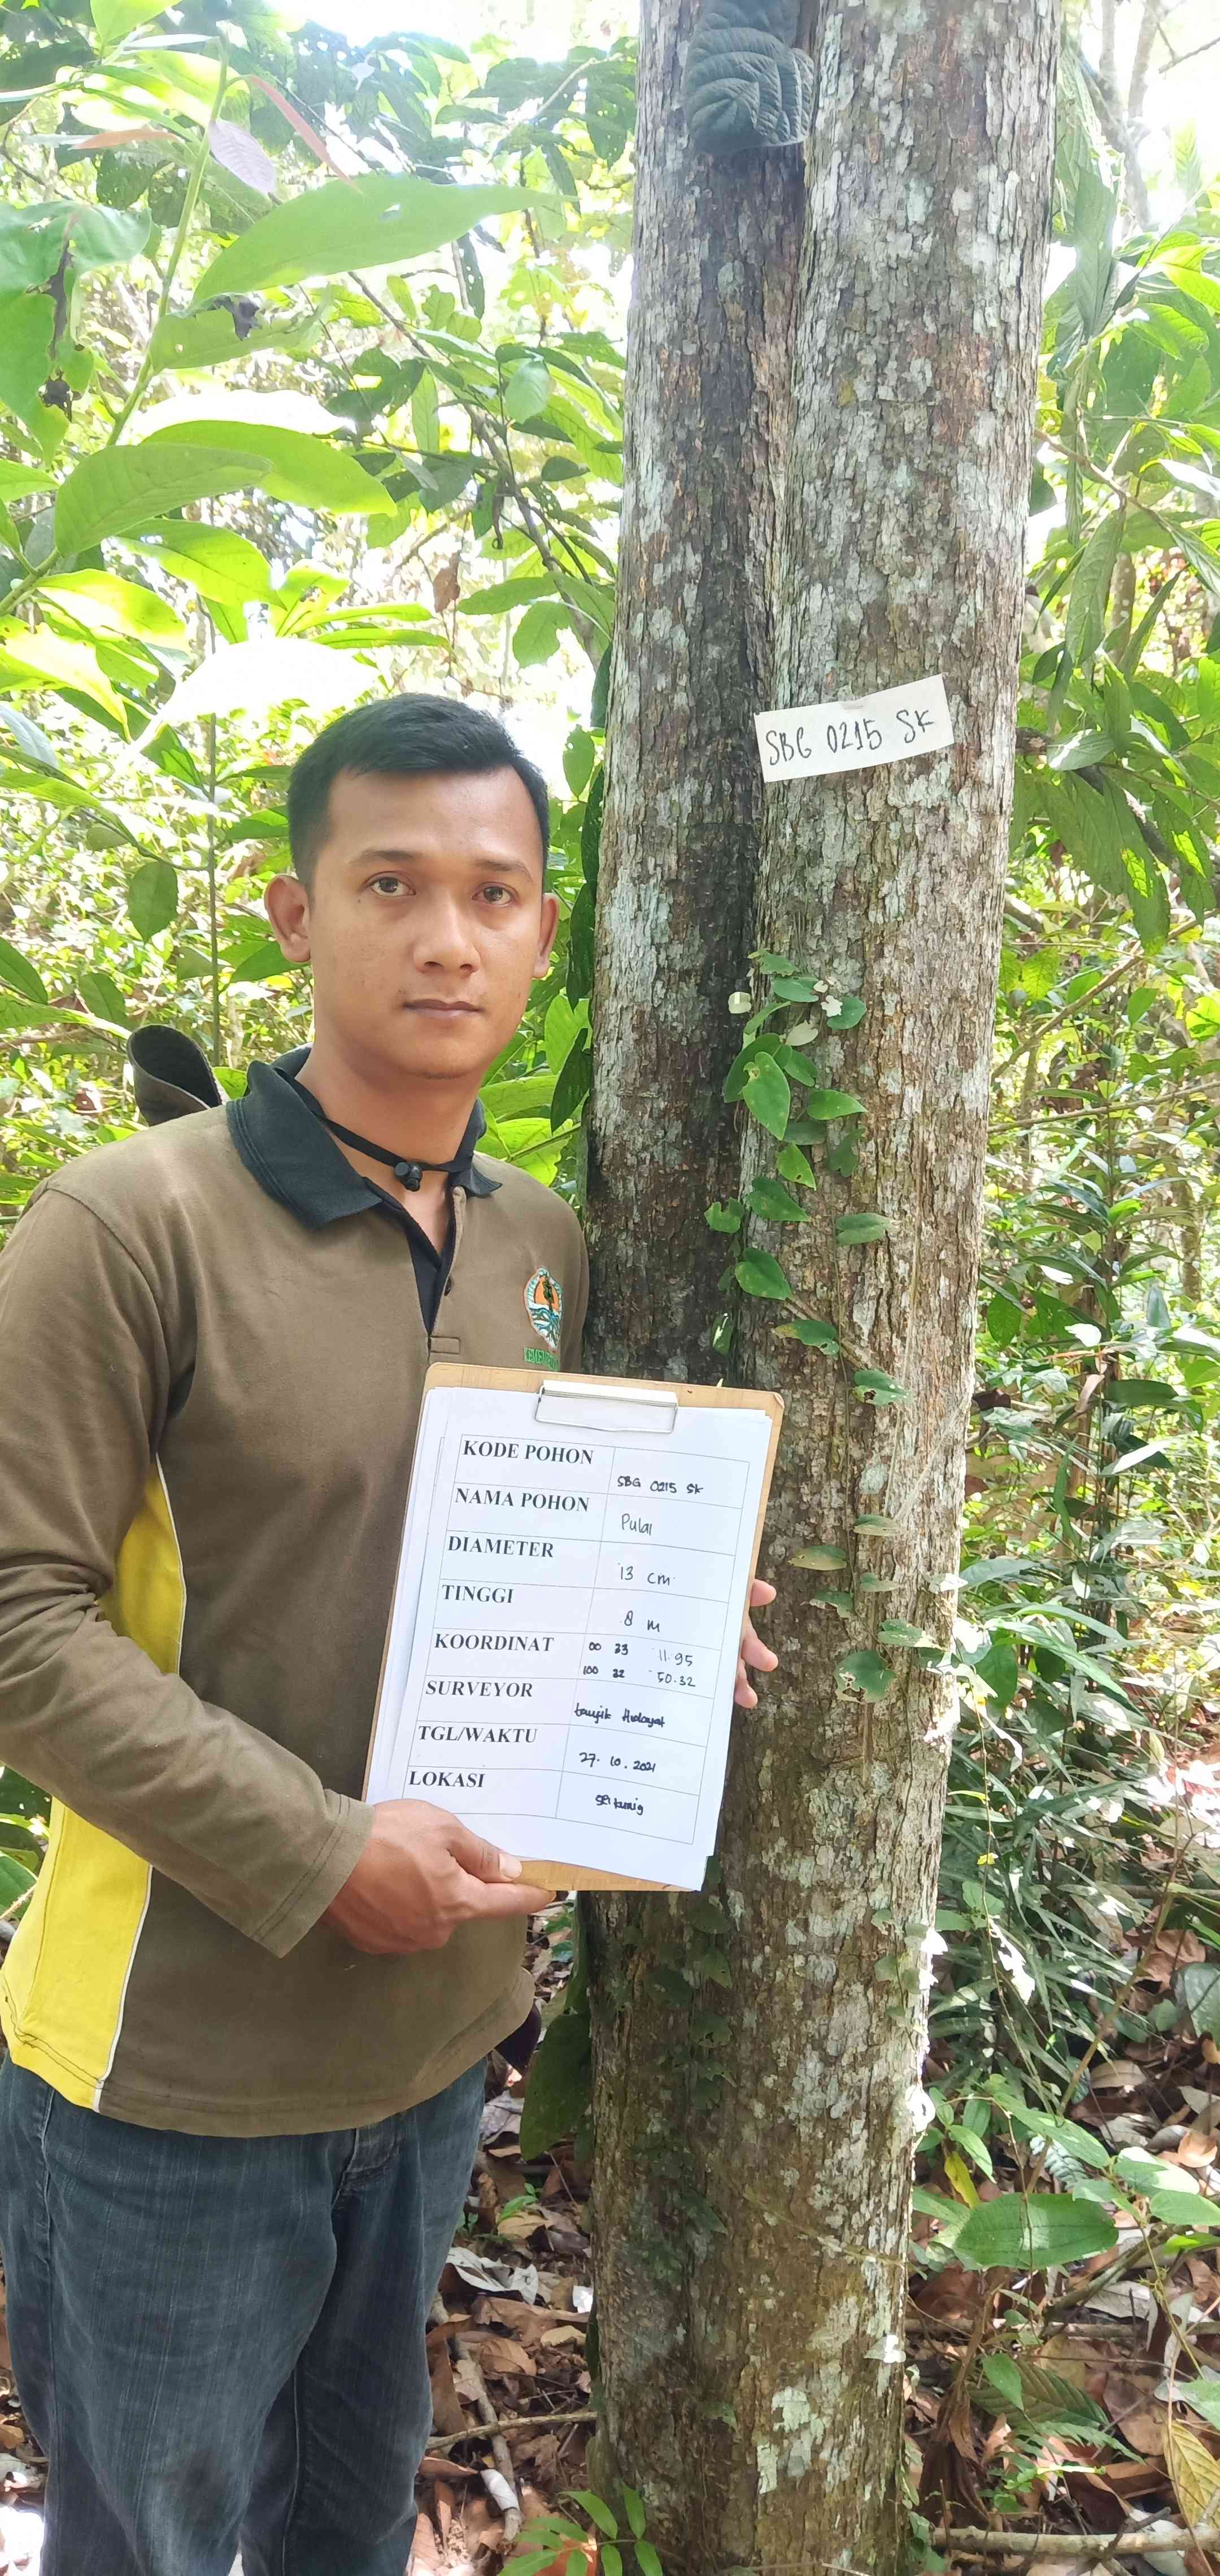 SBG 0215 SK
KODE POHON SBG 0215 SK
NAMA POHON Pulai
DIAMETER 13 cm
TINGGI 8 m
KOORDINAT 00 33 11.95
100 32 50.32
SURVEYOR taufik Hidayat
TGL/WAKTU 27. 10. 2021
LOKASI